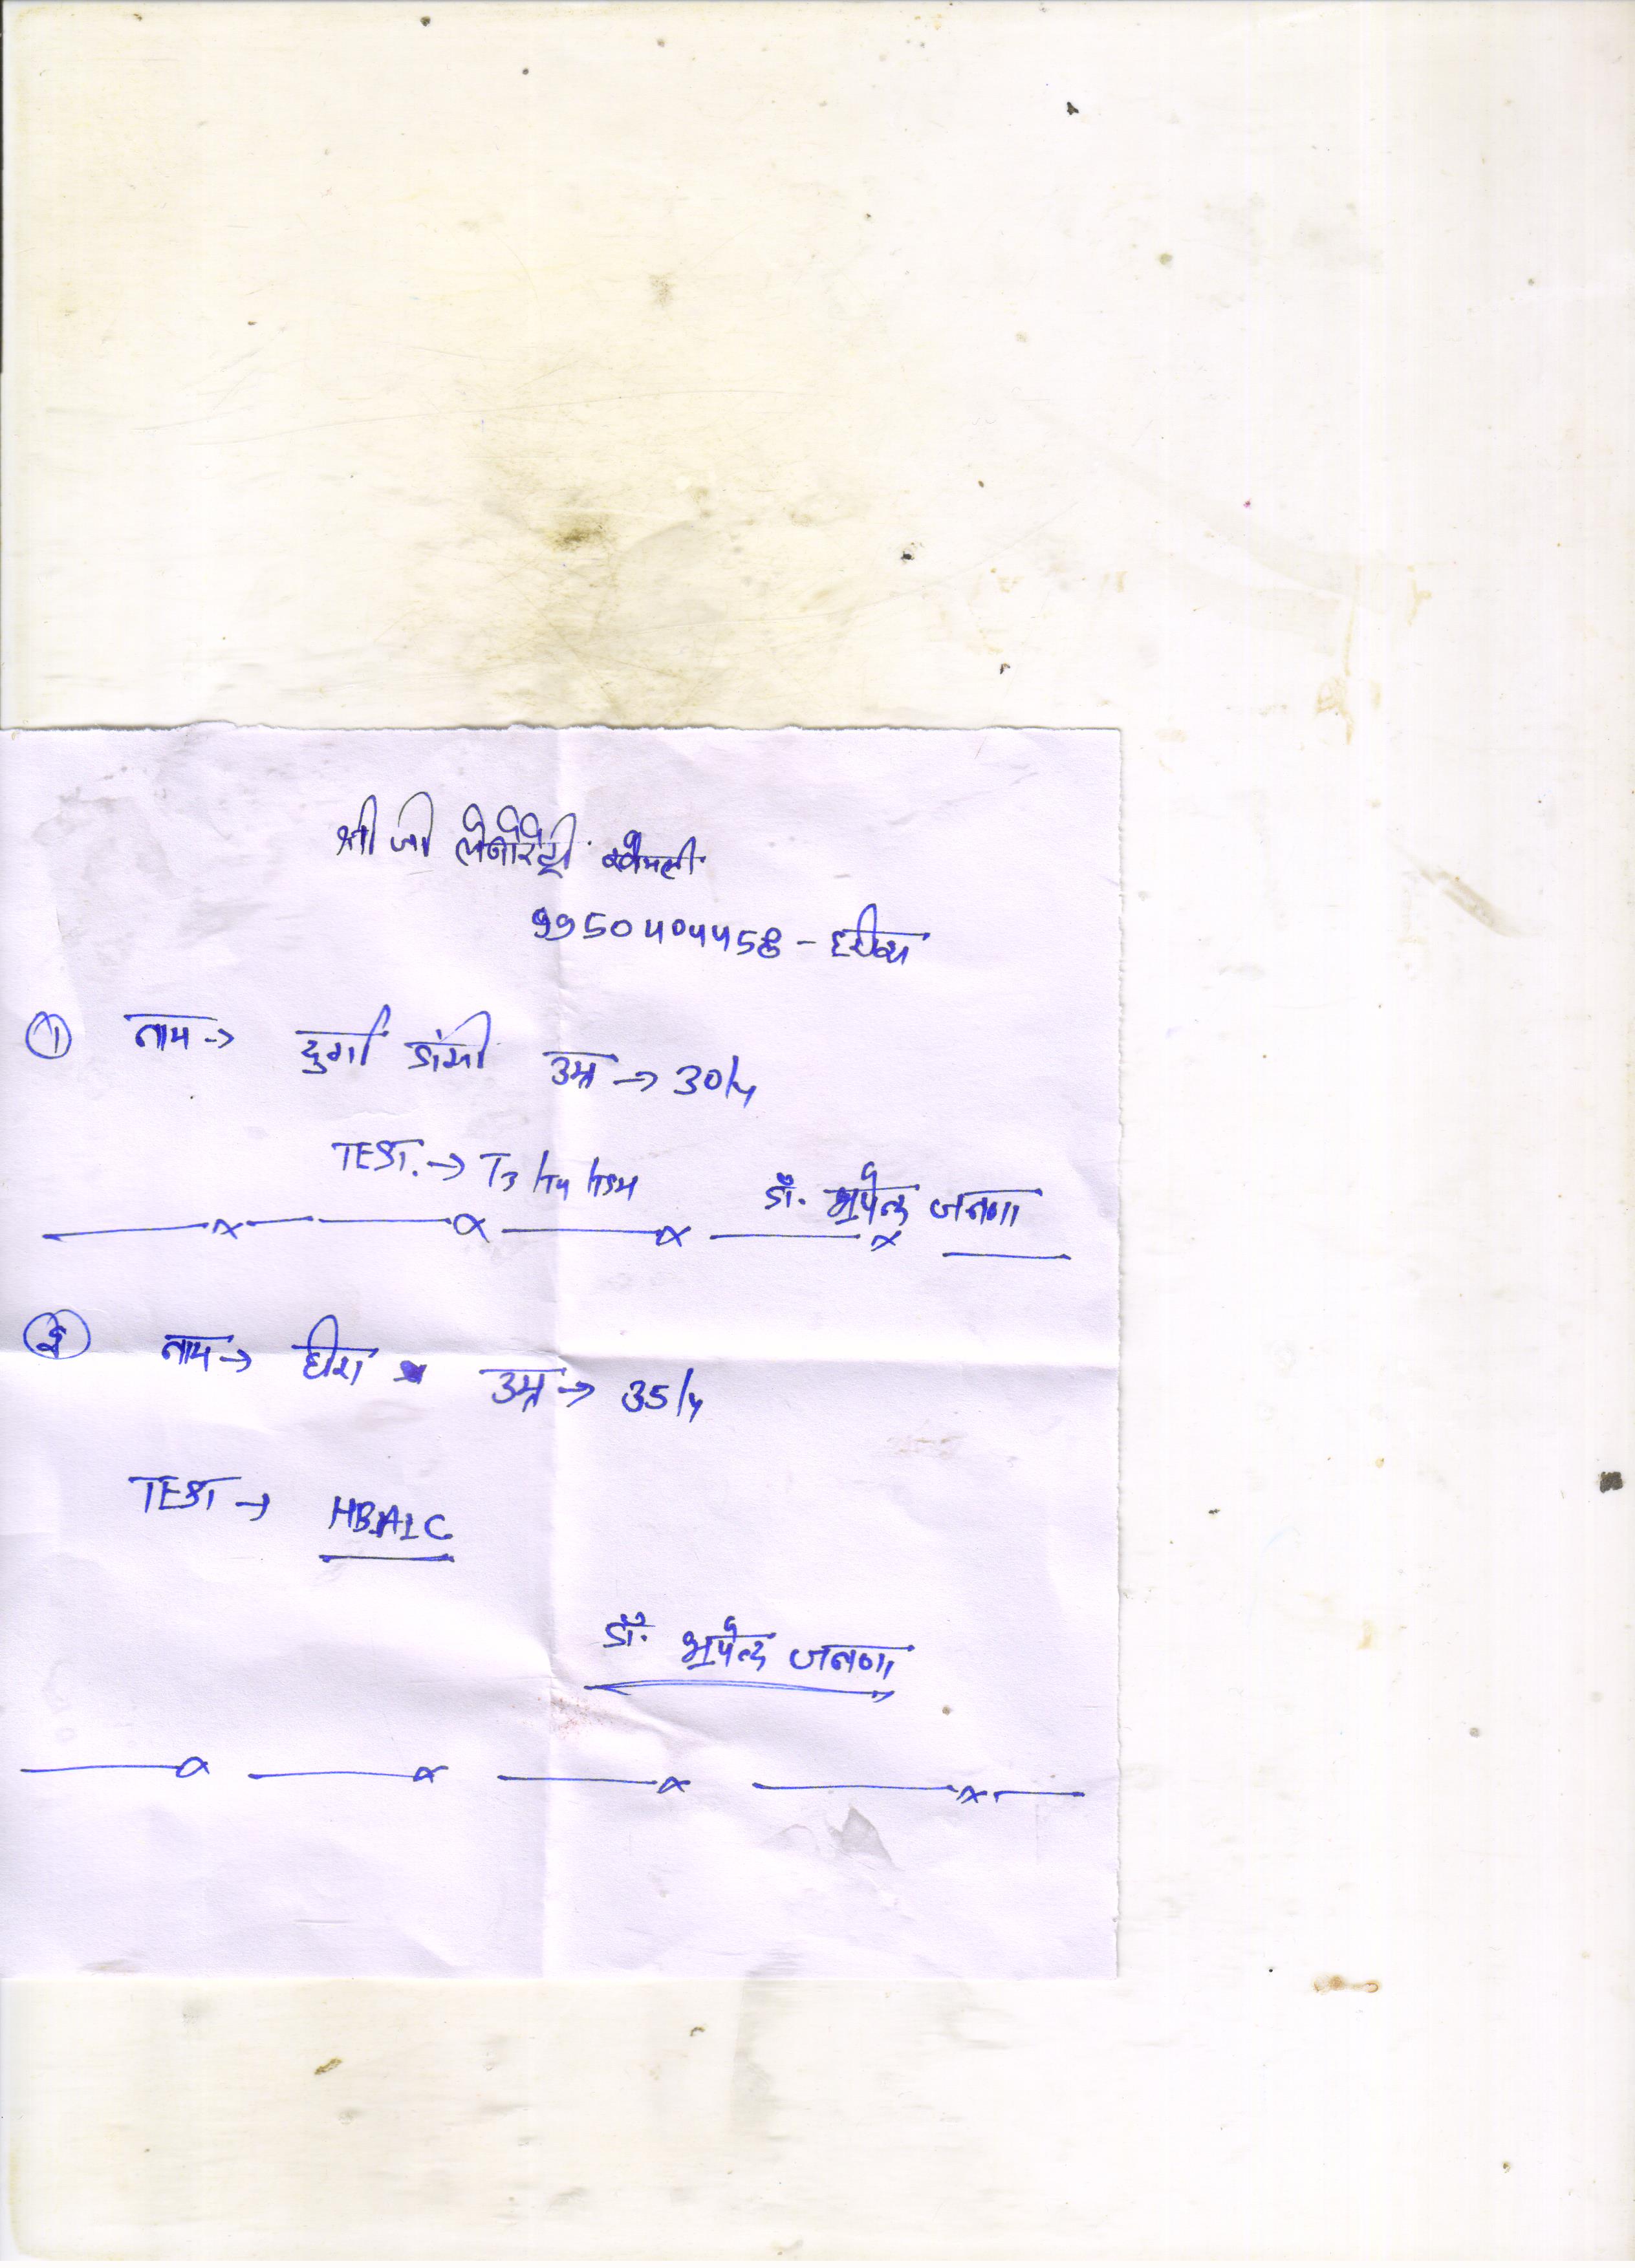 श्री जी लेबोरेट्री खेमली
9950404458 - हरीश
① नाम → दुर्गा डांगी उम्र → 30/y
TEST. → T3/T4/TSH डॉ. भुपेन्द्र जनणा
② नाम → हीरा उम्र → 35/y
TEST → HBA1C
डॉ. भुपेन्द्र जनणा